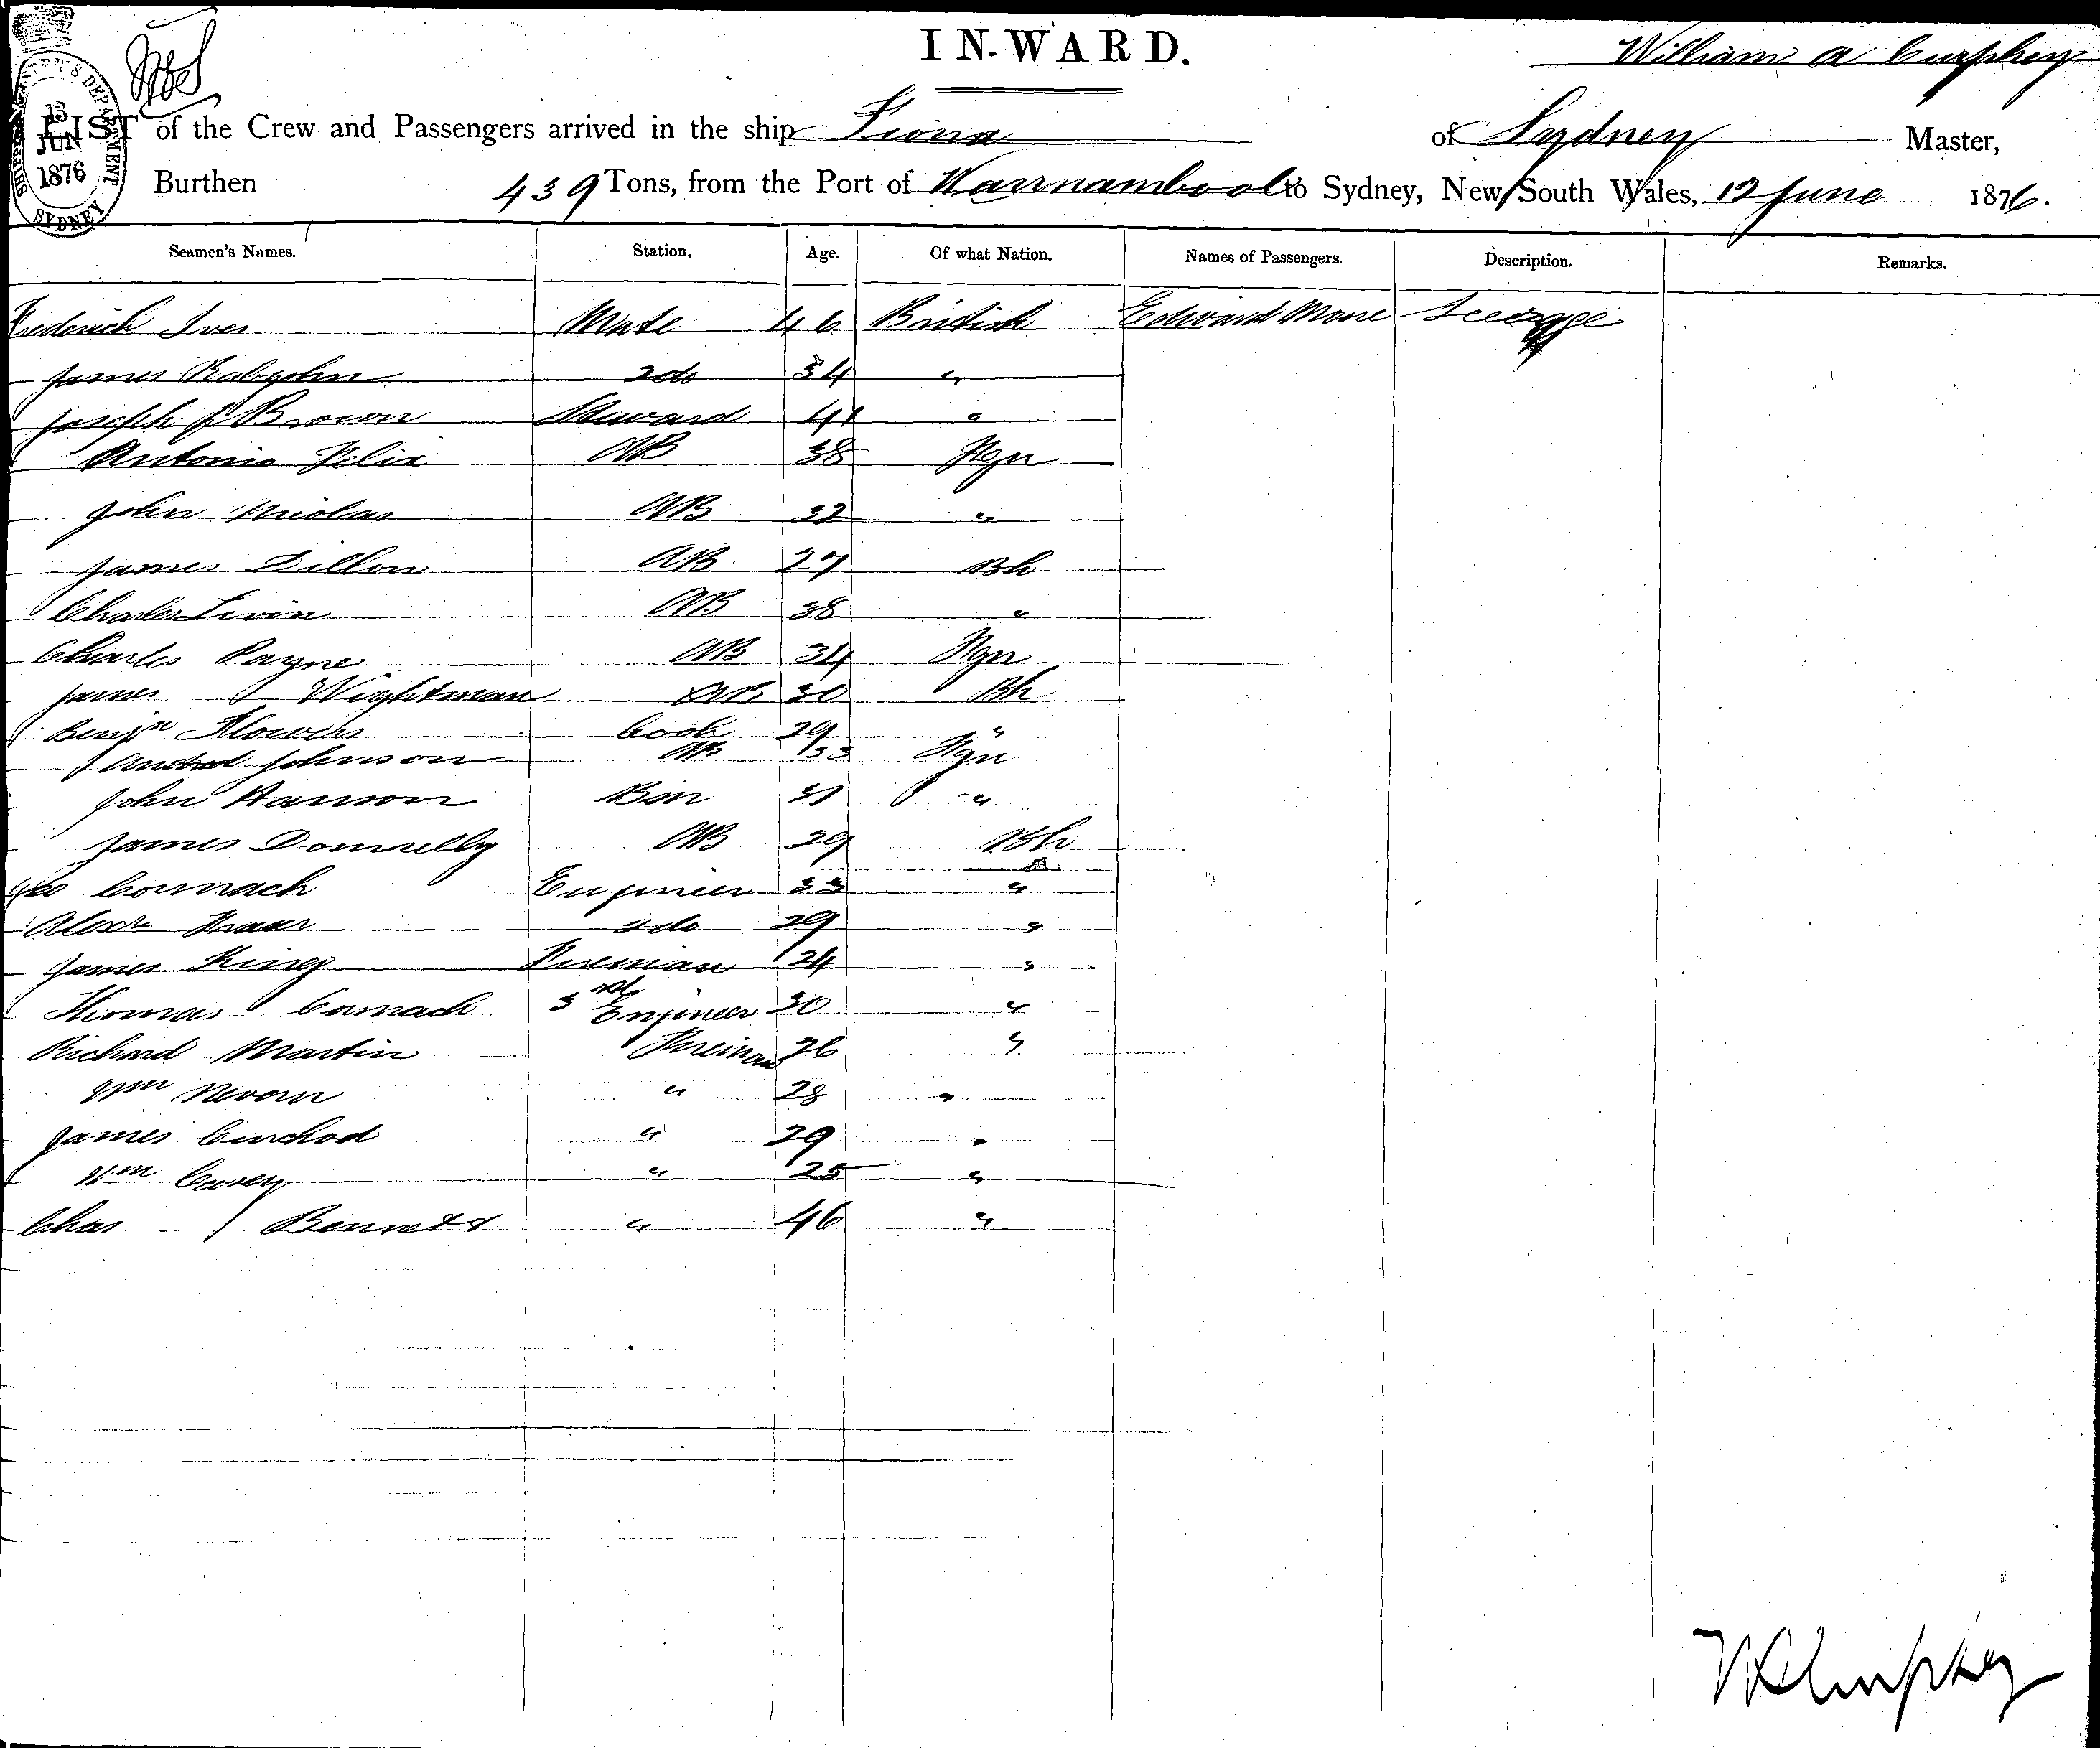 IN-WARD.
William A Curphey
LIST of the Crew and Passengers arrived in the ship Fiona of Sydney Master,
13 JUN 1876
SYDNEY
Burthen 439 Tons, from the Port of Warrnambool to Sydney, New South Wales, 12 June 1876.
Seamen's Names. Station, Age. Of what Nation. Names of Passengers. Description. Remarks.
Frederick Ives Mate 46 British Edward More
James Rabjohn 2do 34 "
Joseph J Brown Steward 41 "
Antonio Felix AB 38 Fgn
John Nicolas AB 32 "
James Dillon AB 27 Bh
Charles Livin AB 38 "
Charles Payne AB 34 Fgn
James Wightman AB 30 Bh
Benjn Flowers Cook 29 "
Andrew Johnson AB 33 Fgn
John Hanson Bsn 31 "
James Donnelly AB 29 Bh
Geo Cormach Engineer 33 "
Alexr Fraser 2do 29 "
James King Fireman 24 "
Thomas Cormach 3rd Engineer 30 "
Richard Martin Fireman 26 "
Wm " 28 "
James " 29 "
Wm Casey " 25 "
Chas J Bennett " 46 "
WACurphey